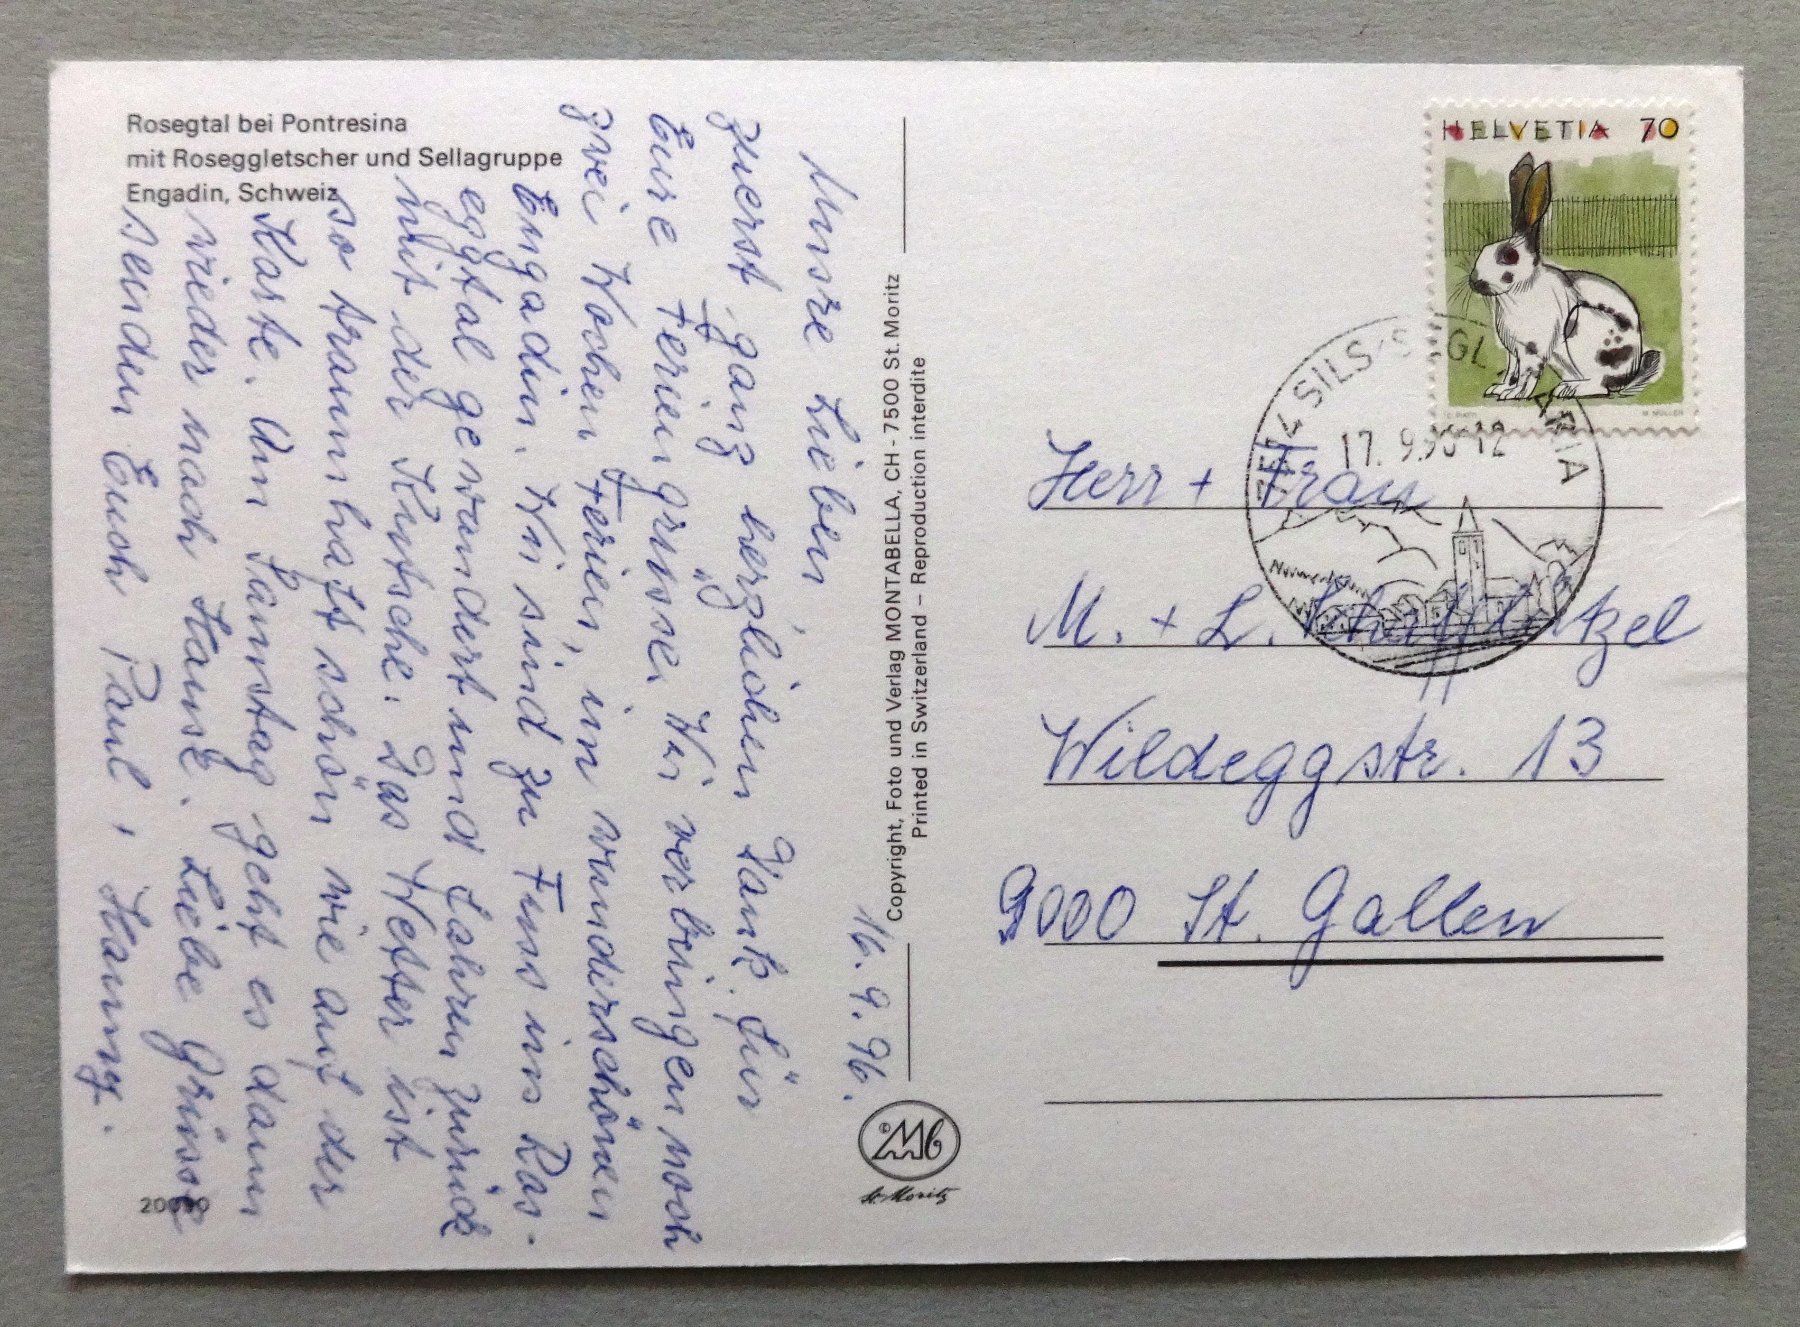 Rosegtal bei Pontresina
mit Roseggletscher und Sellagruppe
Engadin, Schweiz
16. 9. 96.
Unsre Lieben,
zuerst ganz herzlichen Dank für
Eure Feriengrüsse. Wir verbringen noch
zwei Wochen Ferien, im wunderschönen
Engadin. Wir sind zu Fuss ins Ros-
eggtal gewandert und fahren zurück
mit der Kutsche. Das Wetter ist
so traumhaft schön wie auf der
Karte. Am Samstag geht es dann
wieder nach Hause. Liebe Grüsse
senden Euch Paul + Hanny.
Copyright, Foto und Verlag MONTABELLA, CH - 7500 St. Moritz
Printed in Switzerland – Reproduction interdite
©Mb
St. Moritz
HELVETIA 70
M. MÜLLER
SILS/SEGL MARIA
17. 9. 96-12
Herr + Frau
M. + L.
Wildeggstr. 13
9000 St. Gallen